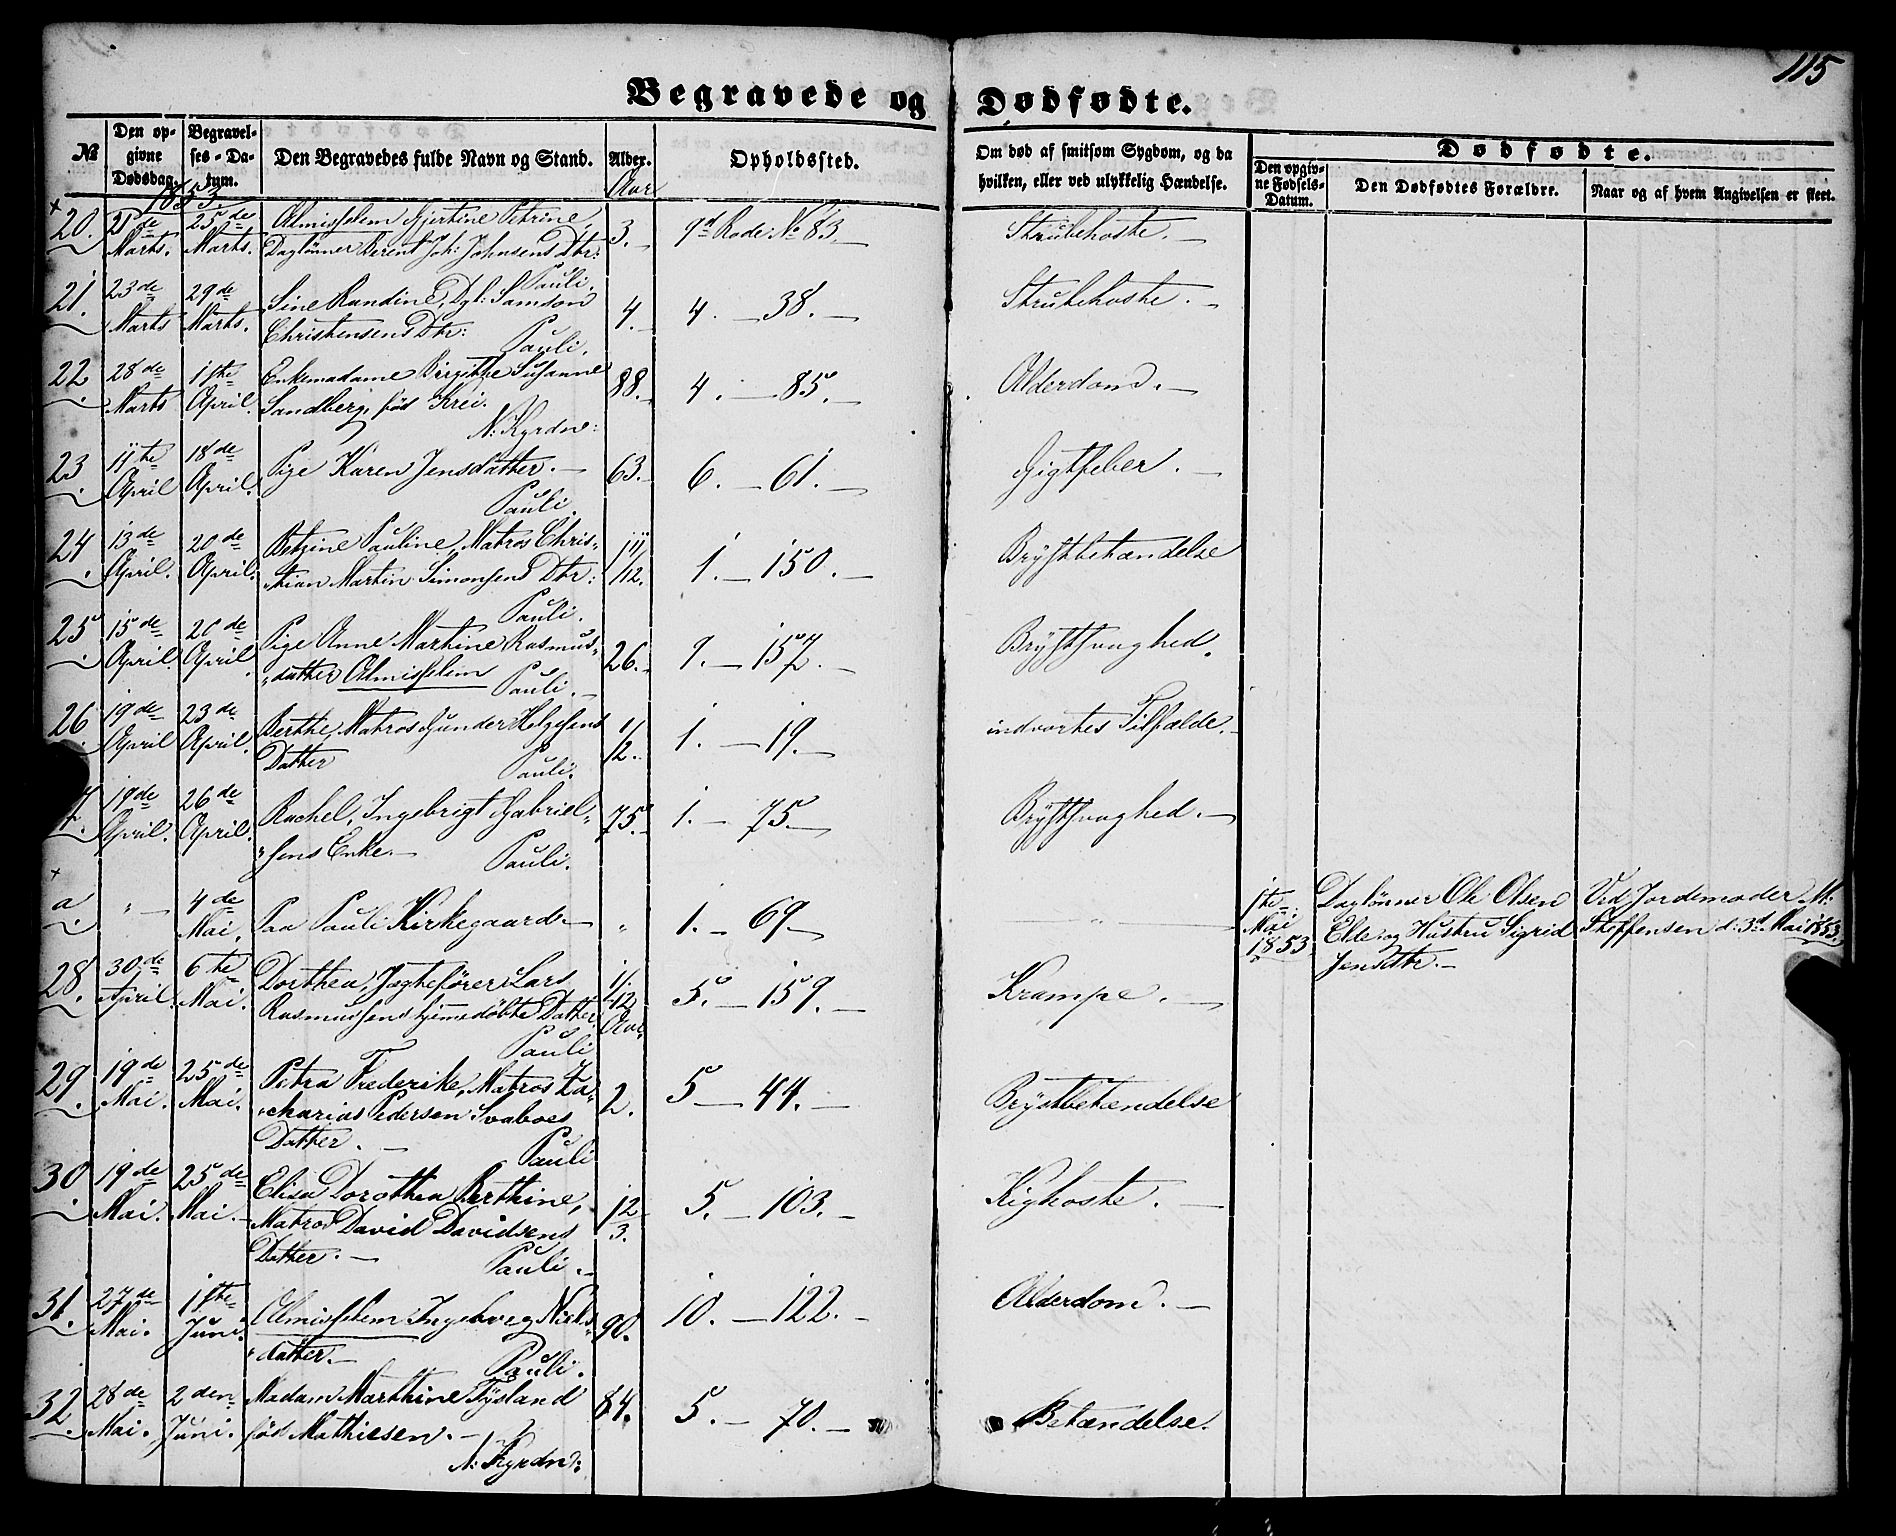 115
Begravede og Dødfødte.
№
Den opgivne Dødsdag.
Begravelses-Datum.
Den Begravedes fulde Navn og Stand.
Alder.
Aar
Opholdssted.
Om død af smitsom Sygdom, og da hvilken, eller ved ulykkelig Hændelse.
Dødfødte.
Den opgivne Fødsels-Datum.
Den Dødfødtes Forældre.
Naar og af hvem Angivelsen er skeet.
1853
20. 21de Marts. 25de Marts. Almisselem Kjertine Petrine, 3. 9d Rode No 83. Strubehoste.
Daglønner Berent Joh: Johnsens Dtr:
Pauli.
21. 23de Marts 29de Marts. Sine Randine, Dgl: Samson 4. 4. — 38. Strubehoste.
Christensens Dtr:
Pauli.
22 28de Marts 1ste April. Enkemadame Birgitthe Susanne 88. 4. — 85. Alderdom.
Sandberg, fød Krei.
N: Kyrdn:
23 11te April 18de April. Pige Karen Jensdatter. 63. 6. — 61. Gigtfeber.
Pauli.
24 13de April. 20de April. Betzine Pauline, Matros Chris- 11/12. 1. — 150. Brystbetændelse
tian Martin Simonsens Dtr:
Pauli.
25 15de April. 20de April. Pige Anne Martine Rasmus- 26. 9. — 157. Brystsvaghed.
datter Almisselem
Pauli.
26 19de April 23de April. Berthe, Matros Gunder Helgesens 1/12. 1. — 19. indvortes Tilfælde.
Datter
Pauli.
7. 19de April. 26de April. Rachel, Ingebrigt Gabriel- 75. 1. — 75. Brystsvaghed.
sens Enke.
Pauli.
a " — 4de Mai. Paa Pauli Kirkegaard " 1. — 69. " 1te Mai 1853 Daglønner Ole Olsen Ved Jordemoder M:
Elde og Hustru Sigrid Stoffensen d: 3d Mai 1853.
Jensdtr.
28. 30de April. 6te Mai. Dorthea, Jagtefører Lars 1/12 Aar 5. — 159. Krampe.
Rasmussens hjemedøbte Datter
Pauli
29. 19de Mai. 25de Mai. Petra Frederike, Matros Za- 2. 5 — 44. Brystbetændelse
charias Pedersen Svaboes
Datter.
Pauli
30 19de Mai. 25de Mai. Elisa Dorothea Berthine, 12/3. 5. — 103. Kighoste.
Matros David Davidsens
Datter.
Pauli.
31. 27de Mai. 1ste Juni. Almisselem Ingeborg Niels- 90. 10. — 122. Alderdom.
datter.
Pauli.
32. 28de Mai. 2den Juni. Madam Marthine Tysland 84. 5. — 70. Betændelse.
fød Mathiesen.
N: Kyrdn: